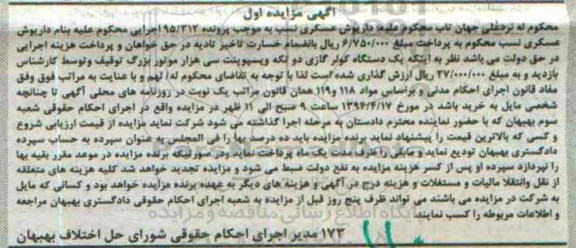 آگهی مزایده اول
محکوم له نرگلی جهان تاب محکوم علیه: داریوش عسکری نسب به موجب پرونده ۹۵/۳۱۲ اجرایی محکوم علیه بنام داریوش
عسکری نسب محکوم به پرداخت مبلغ ۶/۷۵۰/۰۰۰ ریال بانضمام خسارت تاخیر تادیه در حق خواهان و پرداخت هزینه اجرایی
در حق دولت می باشد نظر به اینکه یک دستگاه کولر گازی دو تکه ویسپوینت سی هزار موتور بزرگ توقیف وتوسط کارشناس
بازدید و به مبلغ ۲۷/۰۰۰/۰۰۰ ریال ارزش گذاری شده است لذا با توجه به تقاضای محکوم له/ لهم و با عنایت به مراتب فوق وفق
مفاد قانون اجرای احکام مدنی و براساس مواد 118 و119 همان قانون مراتب یک نوبت در روزنامه های محلی آگهی تا چنانچه
شخصی مایل به خرید باشد در مورخ ۱۳۹۴/۴/۱۷ ساعت ۹ صبح الی ۱۱ ظهر در مزایده واقع در اجرای احکام حقوقی شعبه
سوم بهبهان که با حضور نماینده محترم دادستان به مرحله اجرا گذاشته می شود شرکت نماید مزایده از قیمت ارزیابی شروع
و کسی که بالاترین قیمت را پیشنهاد نماید برنده مزایده باید ده درصد بها را فی المجلس به عنوان سپرده به حساب سپرده
دادگستری بهبهان تودیع نماید و مابقی را ظرف مدت یک ماه پرداخت نماید ودر صورتیکه برنده مزایده در موعد مقرر بقیه بها
را نپردازد سپرده او پس از کسر هزینه مزایده به نفع دولت ضبط می شود و مزایده تجدید خواهد شد، کلیه هزینه های متعلقه
از نقل وانتقلا مالیات و مستغلات و هزینه درج در آگهی و هزینه های دیگر به عهده برنده مزایده خواهد بود و کسانی که مایل
به شرکت در مزایده می باشند می تواند ظرف پنج روز قبل از مزایده به شعبه اجرای احکام حقوقی دادگستری بهبهان مراجعه
و اطلاعات مربوطه را کسب نمایند.
۱۷۳ مدیر اجرای احکام حقوقی شورای حل اختلاف بهبهان